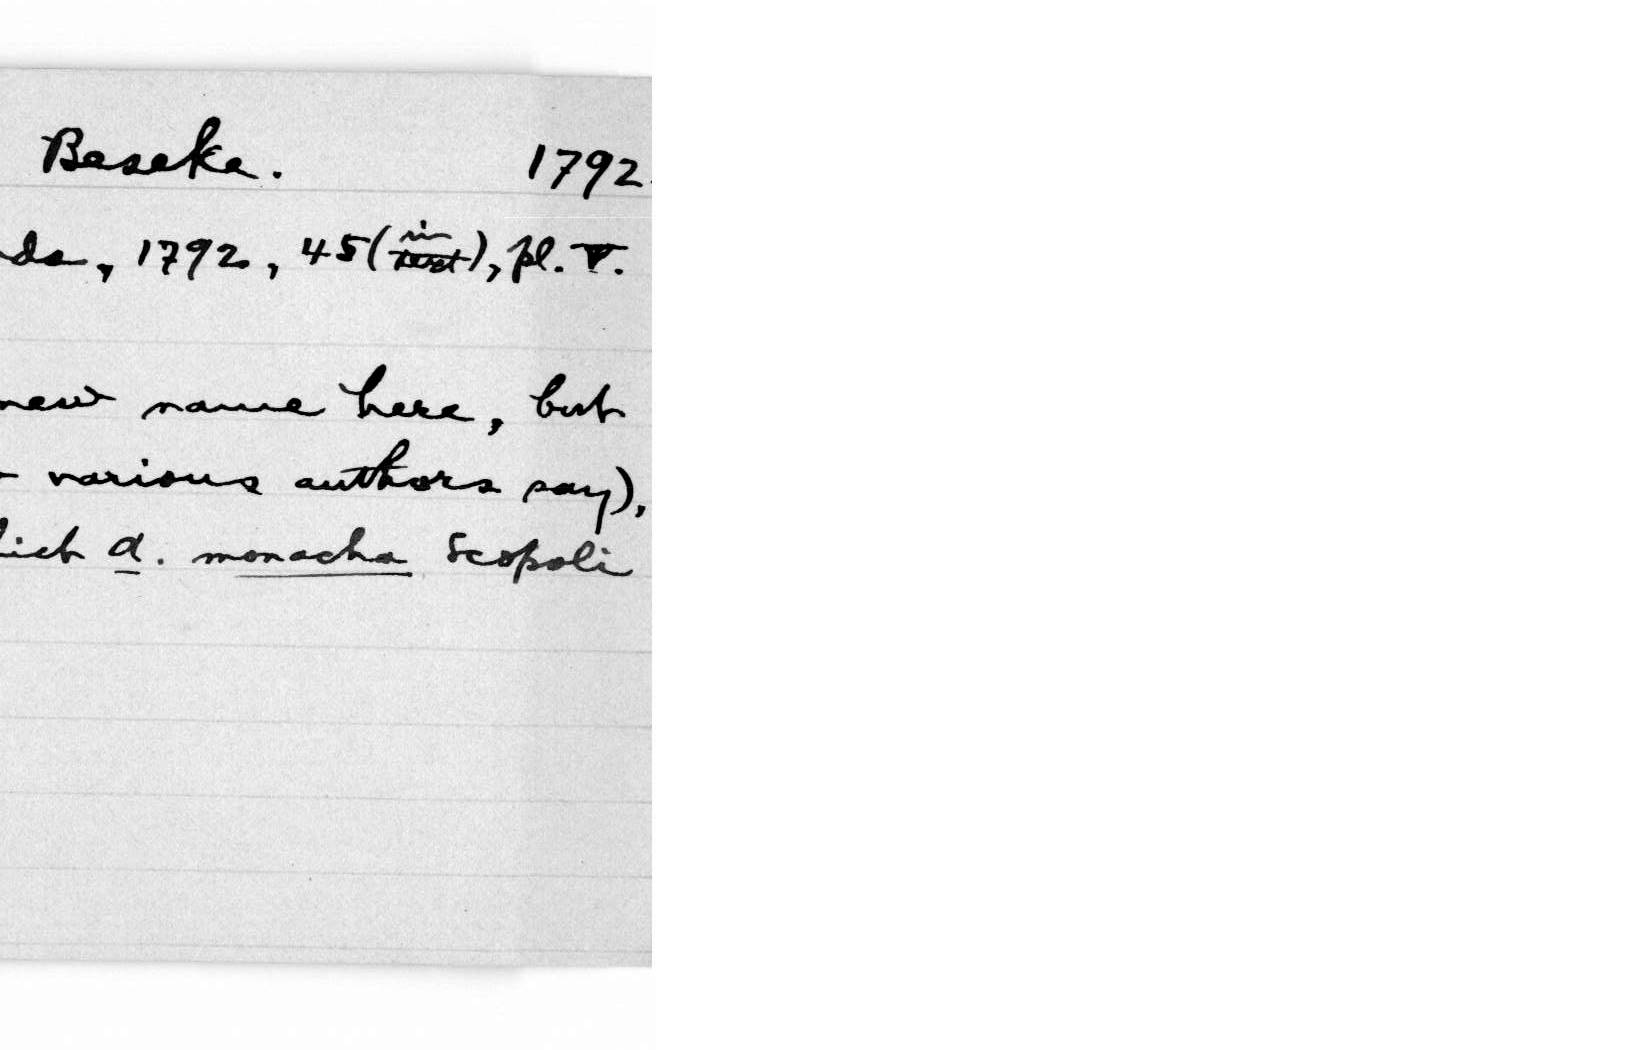 Beseke. 1792.
, 1792, 45 (in text), pl. V.
new name here, but
various authors say),
a. monacha Scopoli